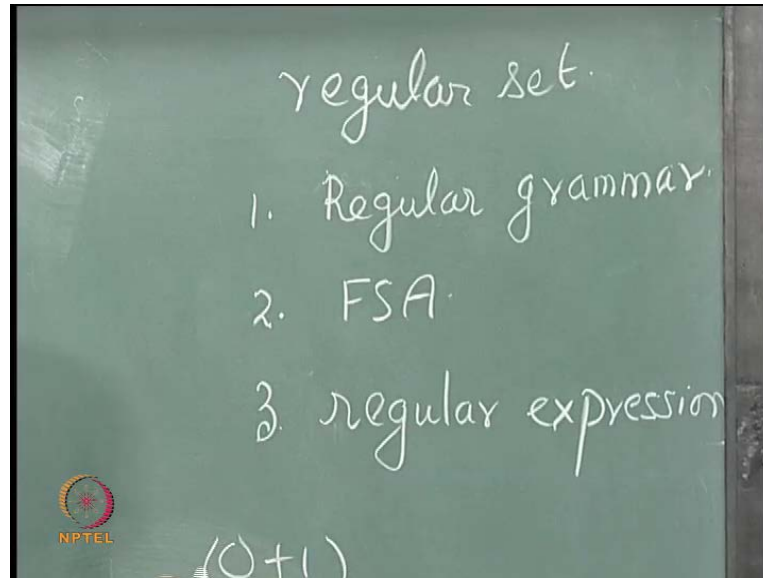 regular set.
1. Regular grammar.
2. FSA.
3. regular expression
(0+1)
NPTEL